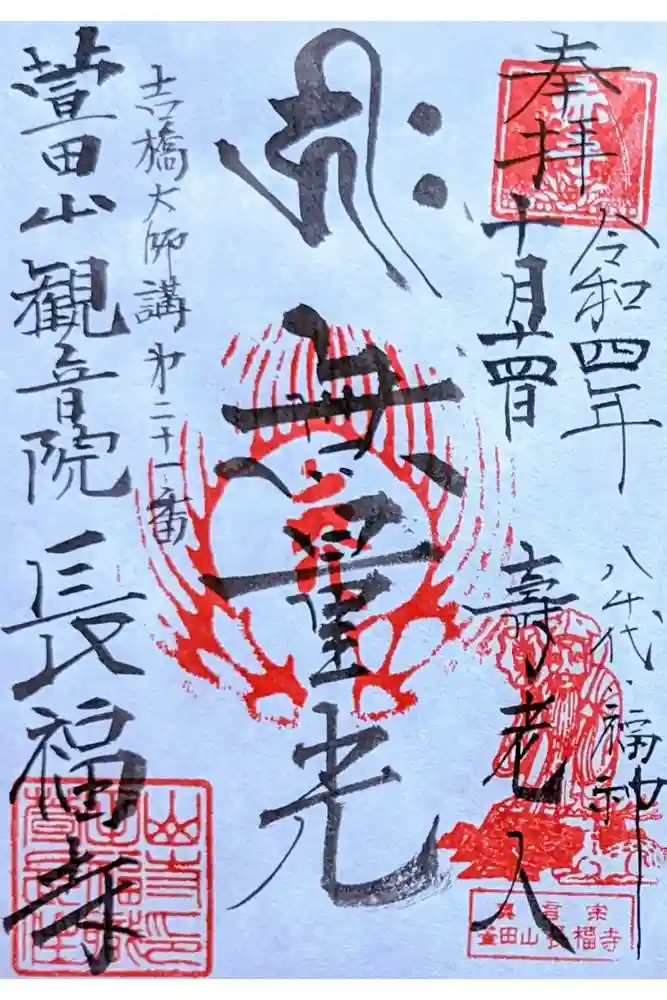 奉拝
令和四年
十月十四日
八千代・福神
寿老人
無量光
吉橋大師講第二十一番
萱田山観音院長福寺
真言宗
萱田山長福寺